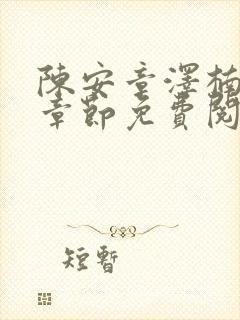 陳安童澤楠
章節免費閱
短暫